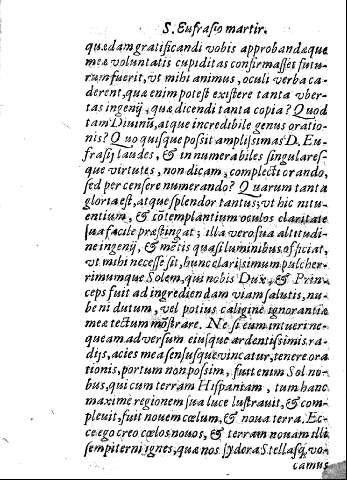 S. Eufrasij martir.
quædam gratificandi vobis approbandæque
meæ voluntatis cupiditas confirmasset futu-
rum fuerit, vt mihi animus, oculi verba ca-
derent, quæ enim potest existere tanta vber-
tas ingenij, quæ dicendi tanta copia? Quod
tam Diuinū, atque incredibile genus oratio-
nis? Quo quisque possit amplissimas D. Eu-
frasij laudes, & innumerabiles singulares-
que virtutes, non dicam, complecti orando,
sed percensere numerando? Quarum tanta
gloria est, atque splendor tantus; vt hic nitu-
entium, & cōtemplantium oculos claritate
sua facile præstingat; illa vero sua altitudi-
ne ingenij, & mētis quasi luminibus officiat,
vt mihi necesse sit, hunc clarissimum pulcher-
rimumque Solem, qui nobis Dux, & Prin-
ceps fuit ad ingrediendam viam salutis, nu-
be ni dutum, vel potius caligine ignorantiæ
meæ tectum mōstrare. Ne si eum intueri ne-
queam aduersum eiusque ardentissimis ra-
dijs, acies mea sensusque vincatur, tenere ora
tionis, portum non possim, fuit enim Sol no-
bus, qui cum terram Hispaniam, tum hanc
maximè regionem sua luce lustrauit, & com-
pleuit, fuit nouem cœlum, & noua terra. Ec-
ce ego creo cœlos nouos, & terram nouam illi
sempiterni ignes, quæ nos sydera Stellasq́; vo-
camus